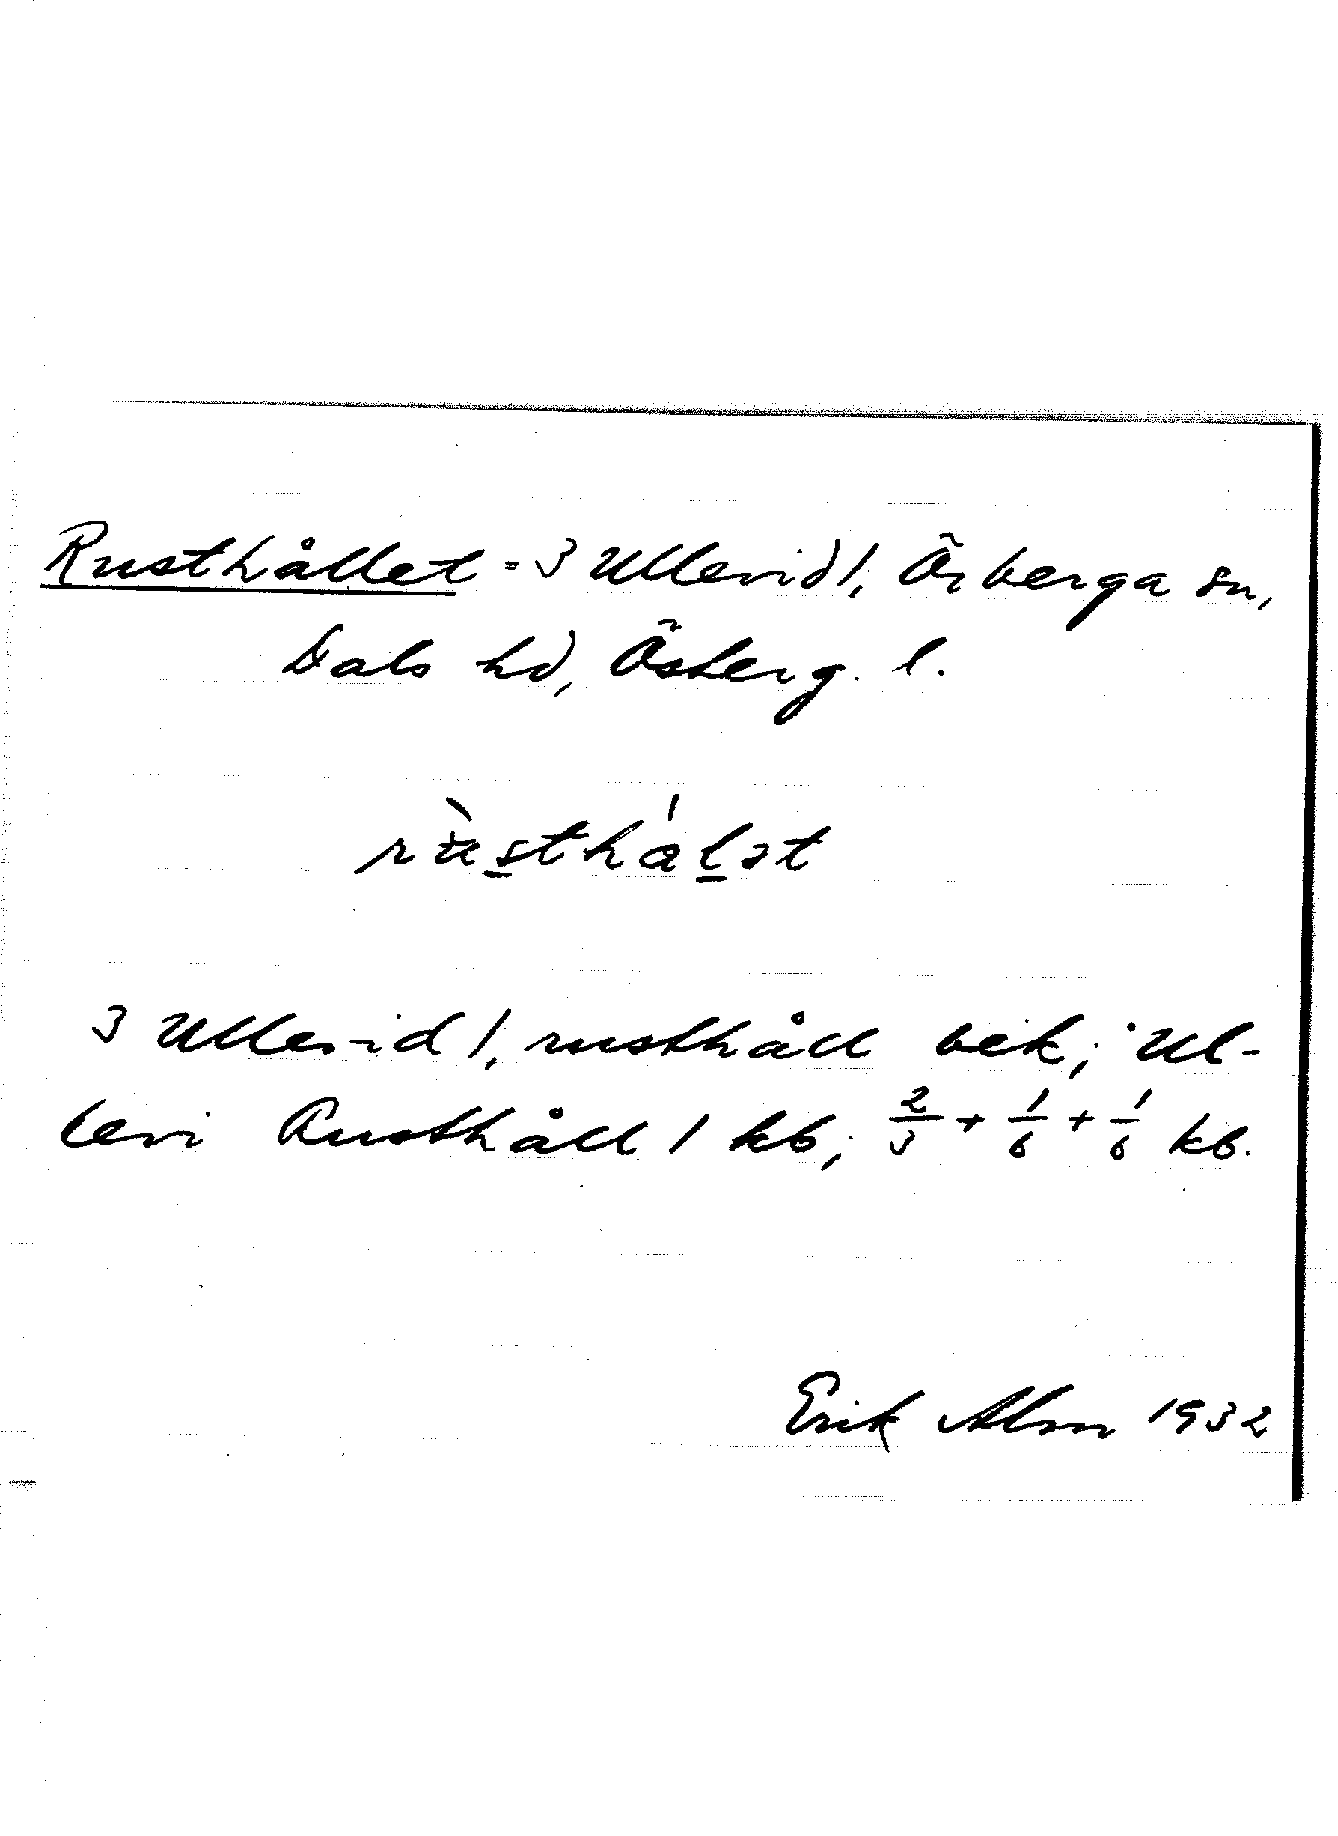 Rusthållet = 3 Ullevid 1, Örberga sn,
Dals hd, Österg. l.
rùsthálət
3 Ullevid 1, rusthåll bek; Ul-
levi Rusthåll 1 kb; 2/3 + 1/6 + 1/6 kb.
Erik Alm 1932